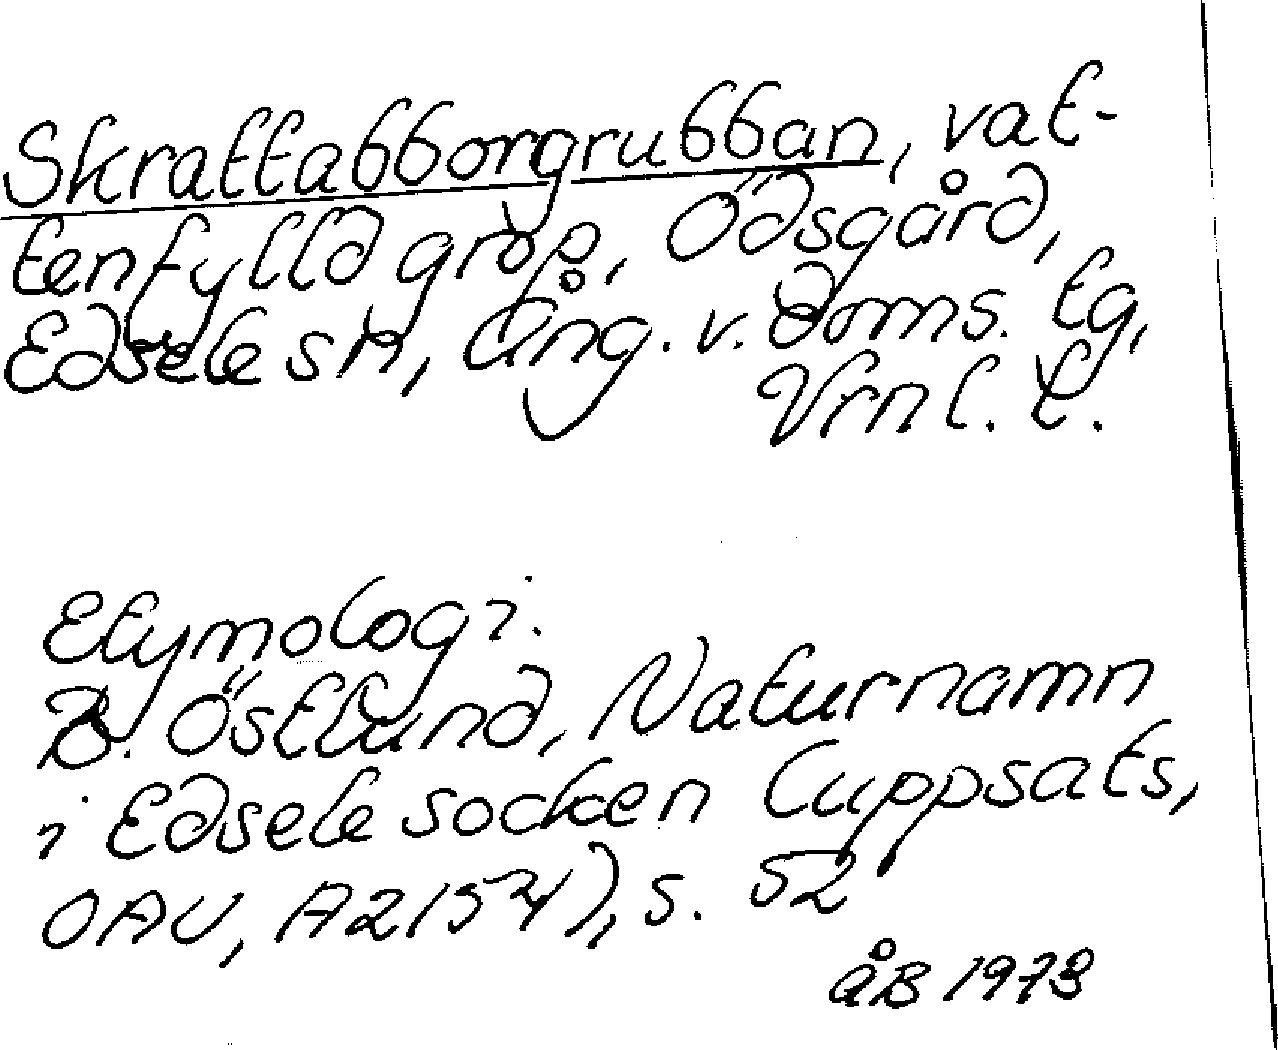 Skrattabborgrubban, vat-
tenfylld grop, Ödsgård,
Edsele sn, Ång. v. doms. tg,
Vrnl. t.
Etymologi.
B. Östlund, Naturnamn
i Edsele socken (uppsats,
OAU, A2154), s. 52
ÅB 1973